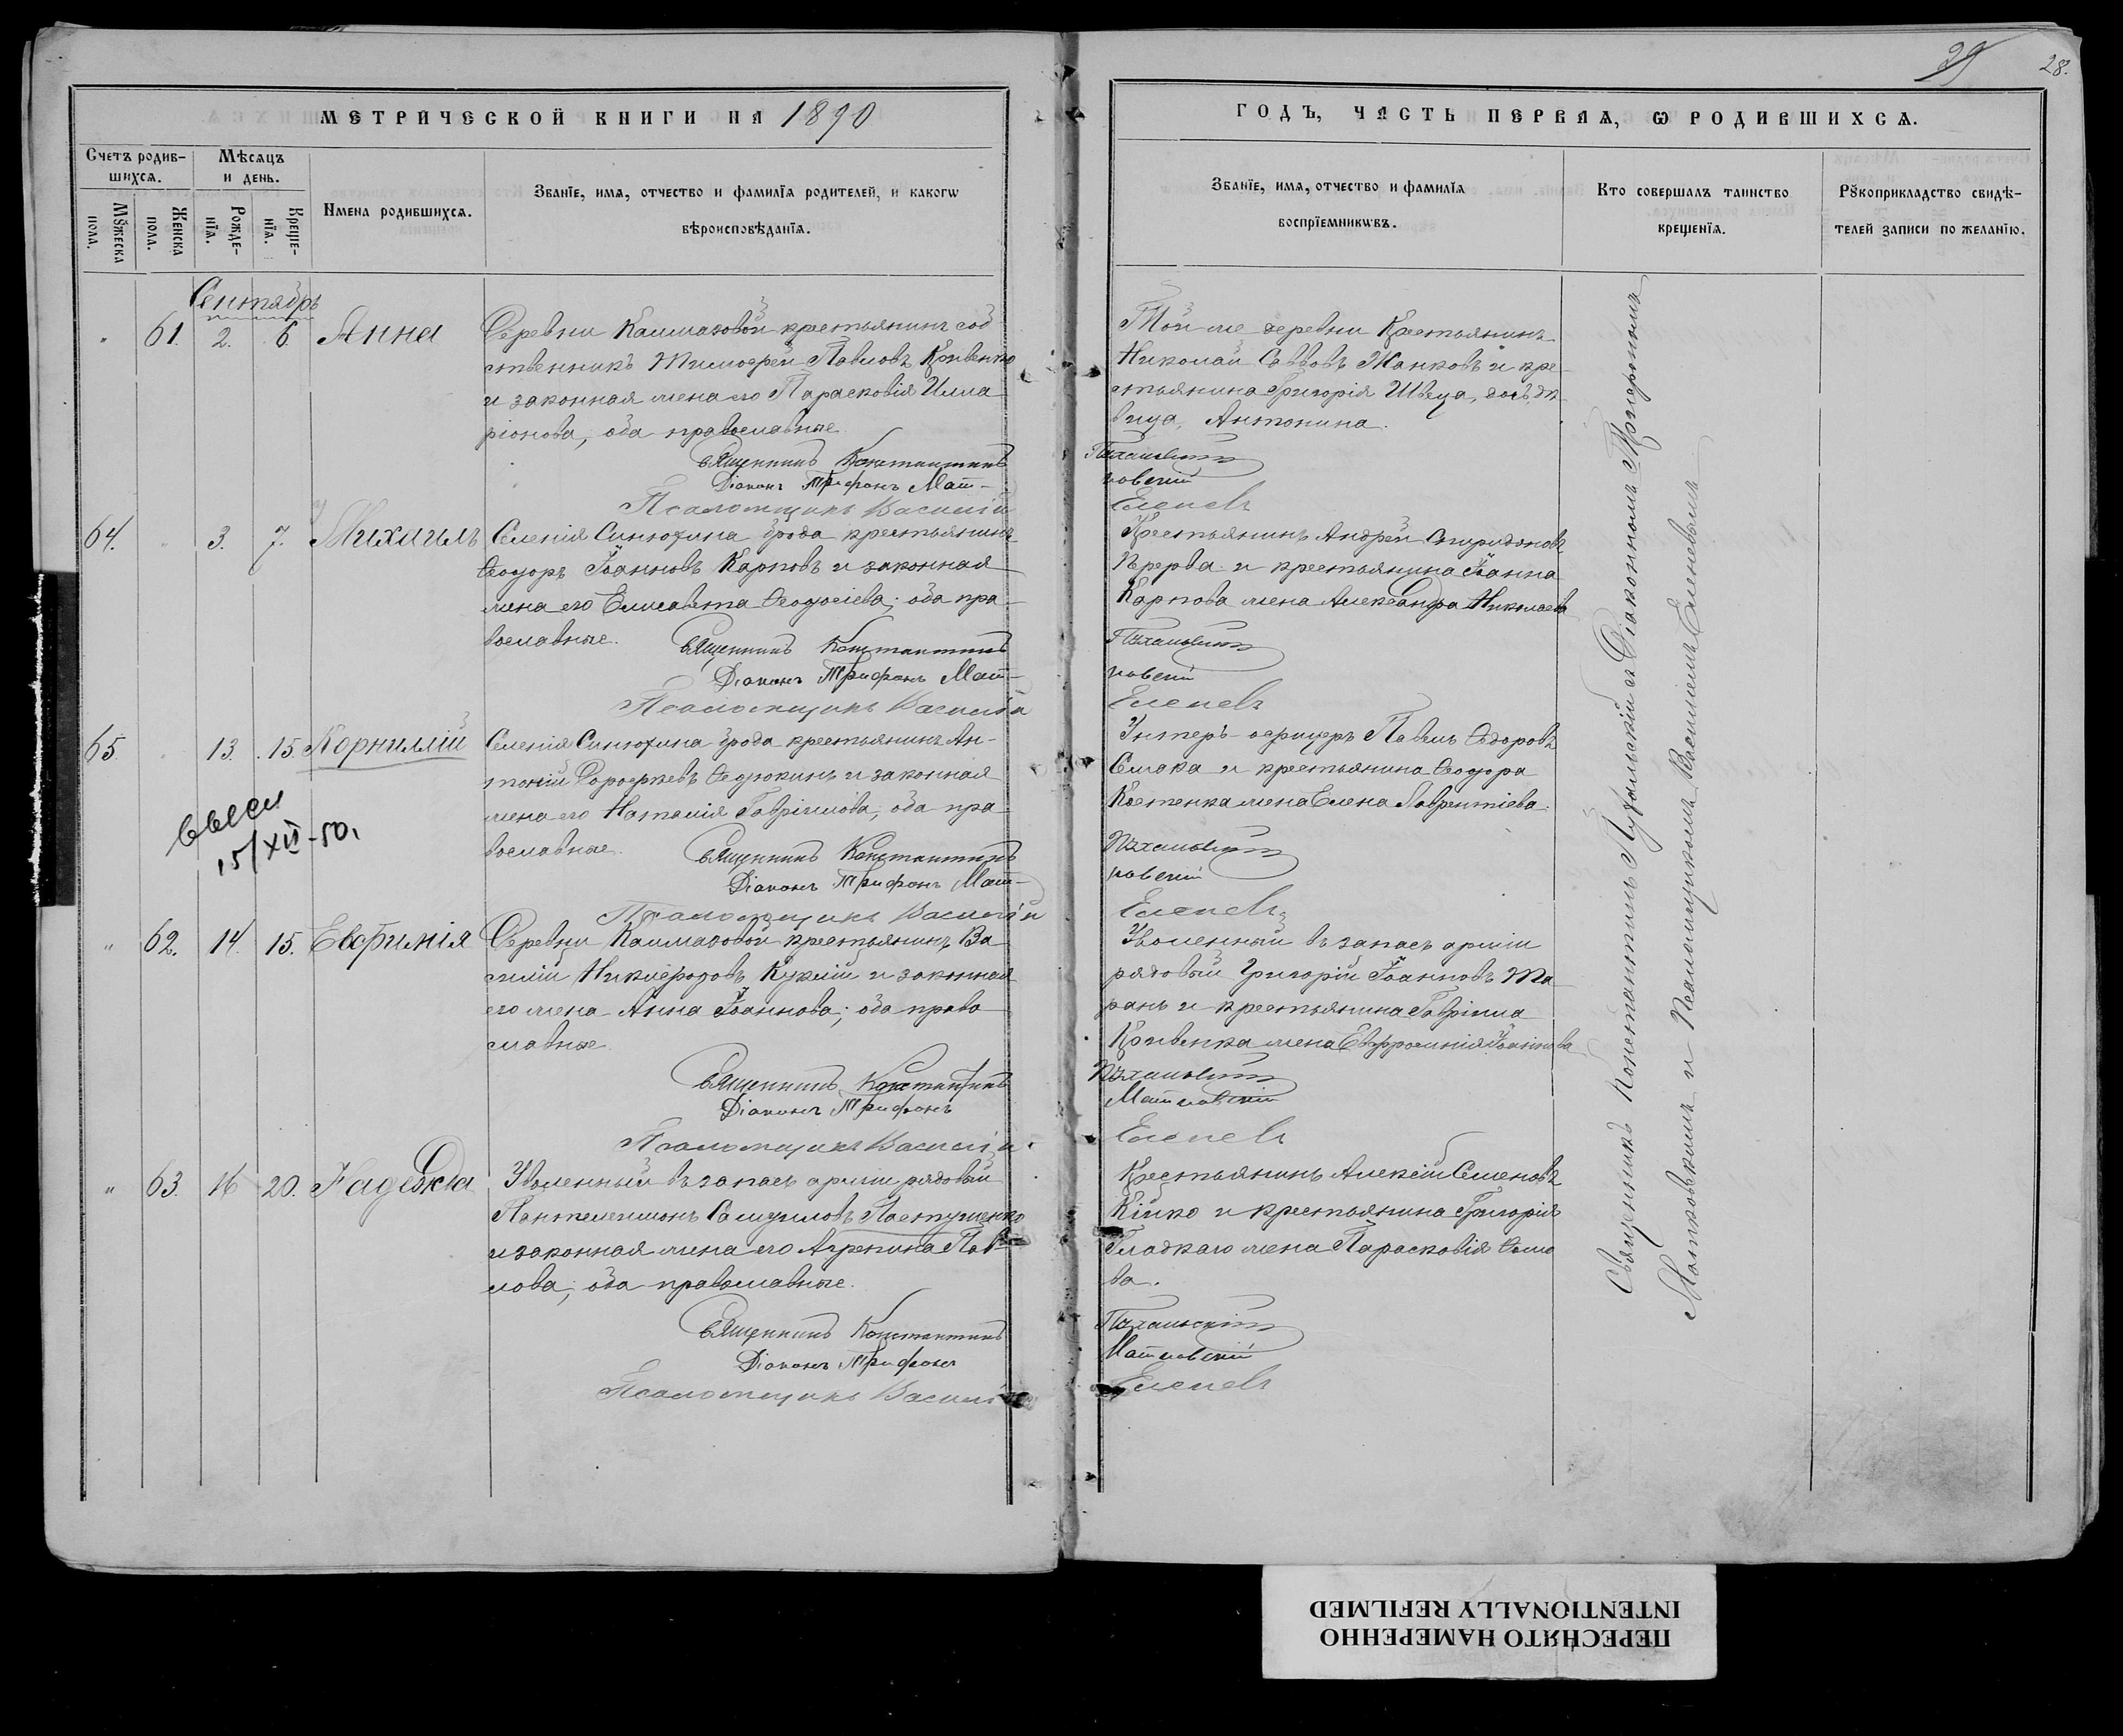 29 28.
МЕТРИЧЕСКОЙ КНИГИ НА 1890
ГОДЪ, ЧАСТЬ ПЕРВАЯ, Ѡ РОДИВШИХСѦ.
Счетъ родив-
шихсѧ.
Мѣсѧцъ
и день.
Мꙋжеска
пола.
Женска
пола.
Рожде-
нїѧ.
Креще-
нїѧ.
Имена родившихсѧ.
Званїе, имѧ, отчество и фамилїѧ родителей, и какогѡ
вѣроисповѣданїѧ.
Званїе, имѧ, отчество и фамилїѧ
воспрїемникѡвъ.
Кто совершалъ таинство
крещенїѧ.
Рꙋкоприкладство свидѣ-
телей записи по желанїю.
Сентябрь
" 61. 2. 6. Анна
Деревни Калмазовой крестьянинъ соб
ственникъ Тимоѳей Павловъ Кривенко
и законная жена его Парасковія Илла
ріонова, оба православные.
Священникъ Константинъ
Діаконъ Трифонъ Мат-
Псаломщикъ Василій
Той же деревни Крестьянинъ
Николай Саввовъ Жанковъ и кре-
стьянина Григорія Швеца, дочь дѣ-
вица, Антонина.
Пухальскій
ковскій
Еленевъ
64. " 3. 7. Михаилъ
Селенія Синюхина Брода крестьянинъ
Ѳеодоръ Іоанновъ Карповъ и законная
жена его Елисавета Ѳеодосіева; оба пра-
вославные.
Священникъ Константинъ
Діаконъ Трифонъ Мат-
Псаломщикъ Василій
Крестьянинъ Андрей Спиридоновъ
Перерва и крестьянина Іоанна
Карпова жена Александра Николаева
Пухальскій
ковскій
Еленевъ
65. " 13. 15. Корнилій
Селенія Синюхина Брода крестьянинъ Ан-
тоній Дороѳеевъ Ѳедюкинъ и законная
жена его Наталія Гавріилова, оба пра-
вославные.
Священникъ Константинъ
Діаконъ Трифонъ Мат-
Псаломщикъ Василій
Унтеръ-офицеръ Павелъ Ѳедоровъ
и крестьянина Ѳеодора
Костенка жена Елена Лаврентіева.
Пухальскій
ковскій
Еленевъ
15/XII-50.
" 62. 14. 15. Евфимія
Деревни Калмазовой крестьянинъ Ва
силій Никифоровъ и законная
его жена Анна Іоаннова; оба право
славные.
Священникъ Константинъ
Діаконъ Трифонъ
Псаломщикъ Василій
Уволенный въ запасъ арміи
рядовый Григорій Іоанновъ Та
ранъ и крестьянина Гавріила
Кривенка жена Евфросинія Іоаннова
Пухальскій
Матковскій
Еленевъ
" 63. 16 20. Надежда
Уволенный въ запасъ арміи рядовый
Пантелеимонъ Самуиловъ Пастушенко
и законная жена его Агрепина Пав-
лова; оба православные.
Священникъ Константинъ
Діаконъ Трифонъ
Псаломщикъ Василій
Крестьянинъ Алексій Семеновъ
Кійко и крестьянина Григорія
Гладкаго жена Парасковія Ѳомо
ва.
Пухальскій
Матковскій
Еленевъ
Священникъ Константинъ Пухальскій съ Діакономъ Трифономъ
Матковскимъ и Псаломщикомъ Василіемъ Еленевымъ
ПЕРЕСНЯТО НАМЕРЕННО
INTENTIONALLY REFILMED